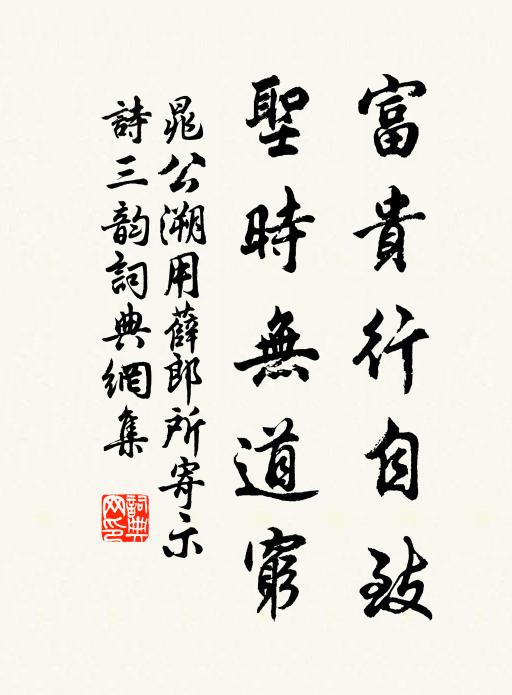 富貴行自致
聖時無道窮
晁公溯用薛郎所寄示
詩三韵詞典網集
詞典網印